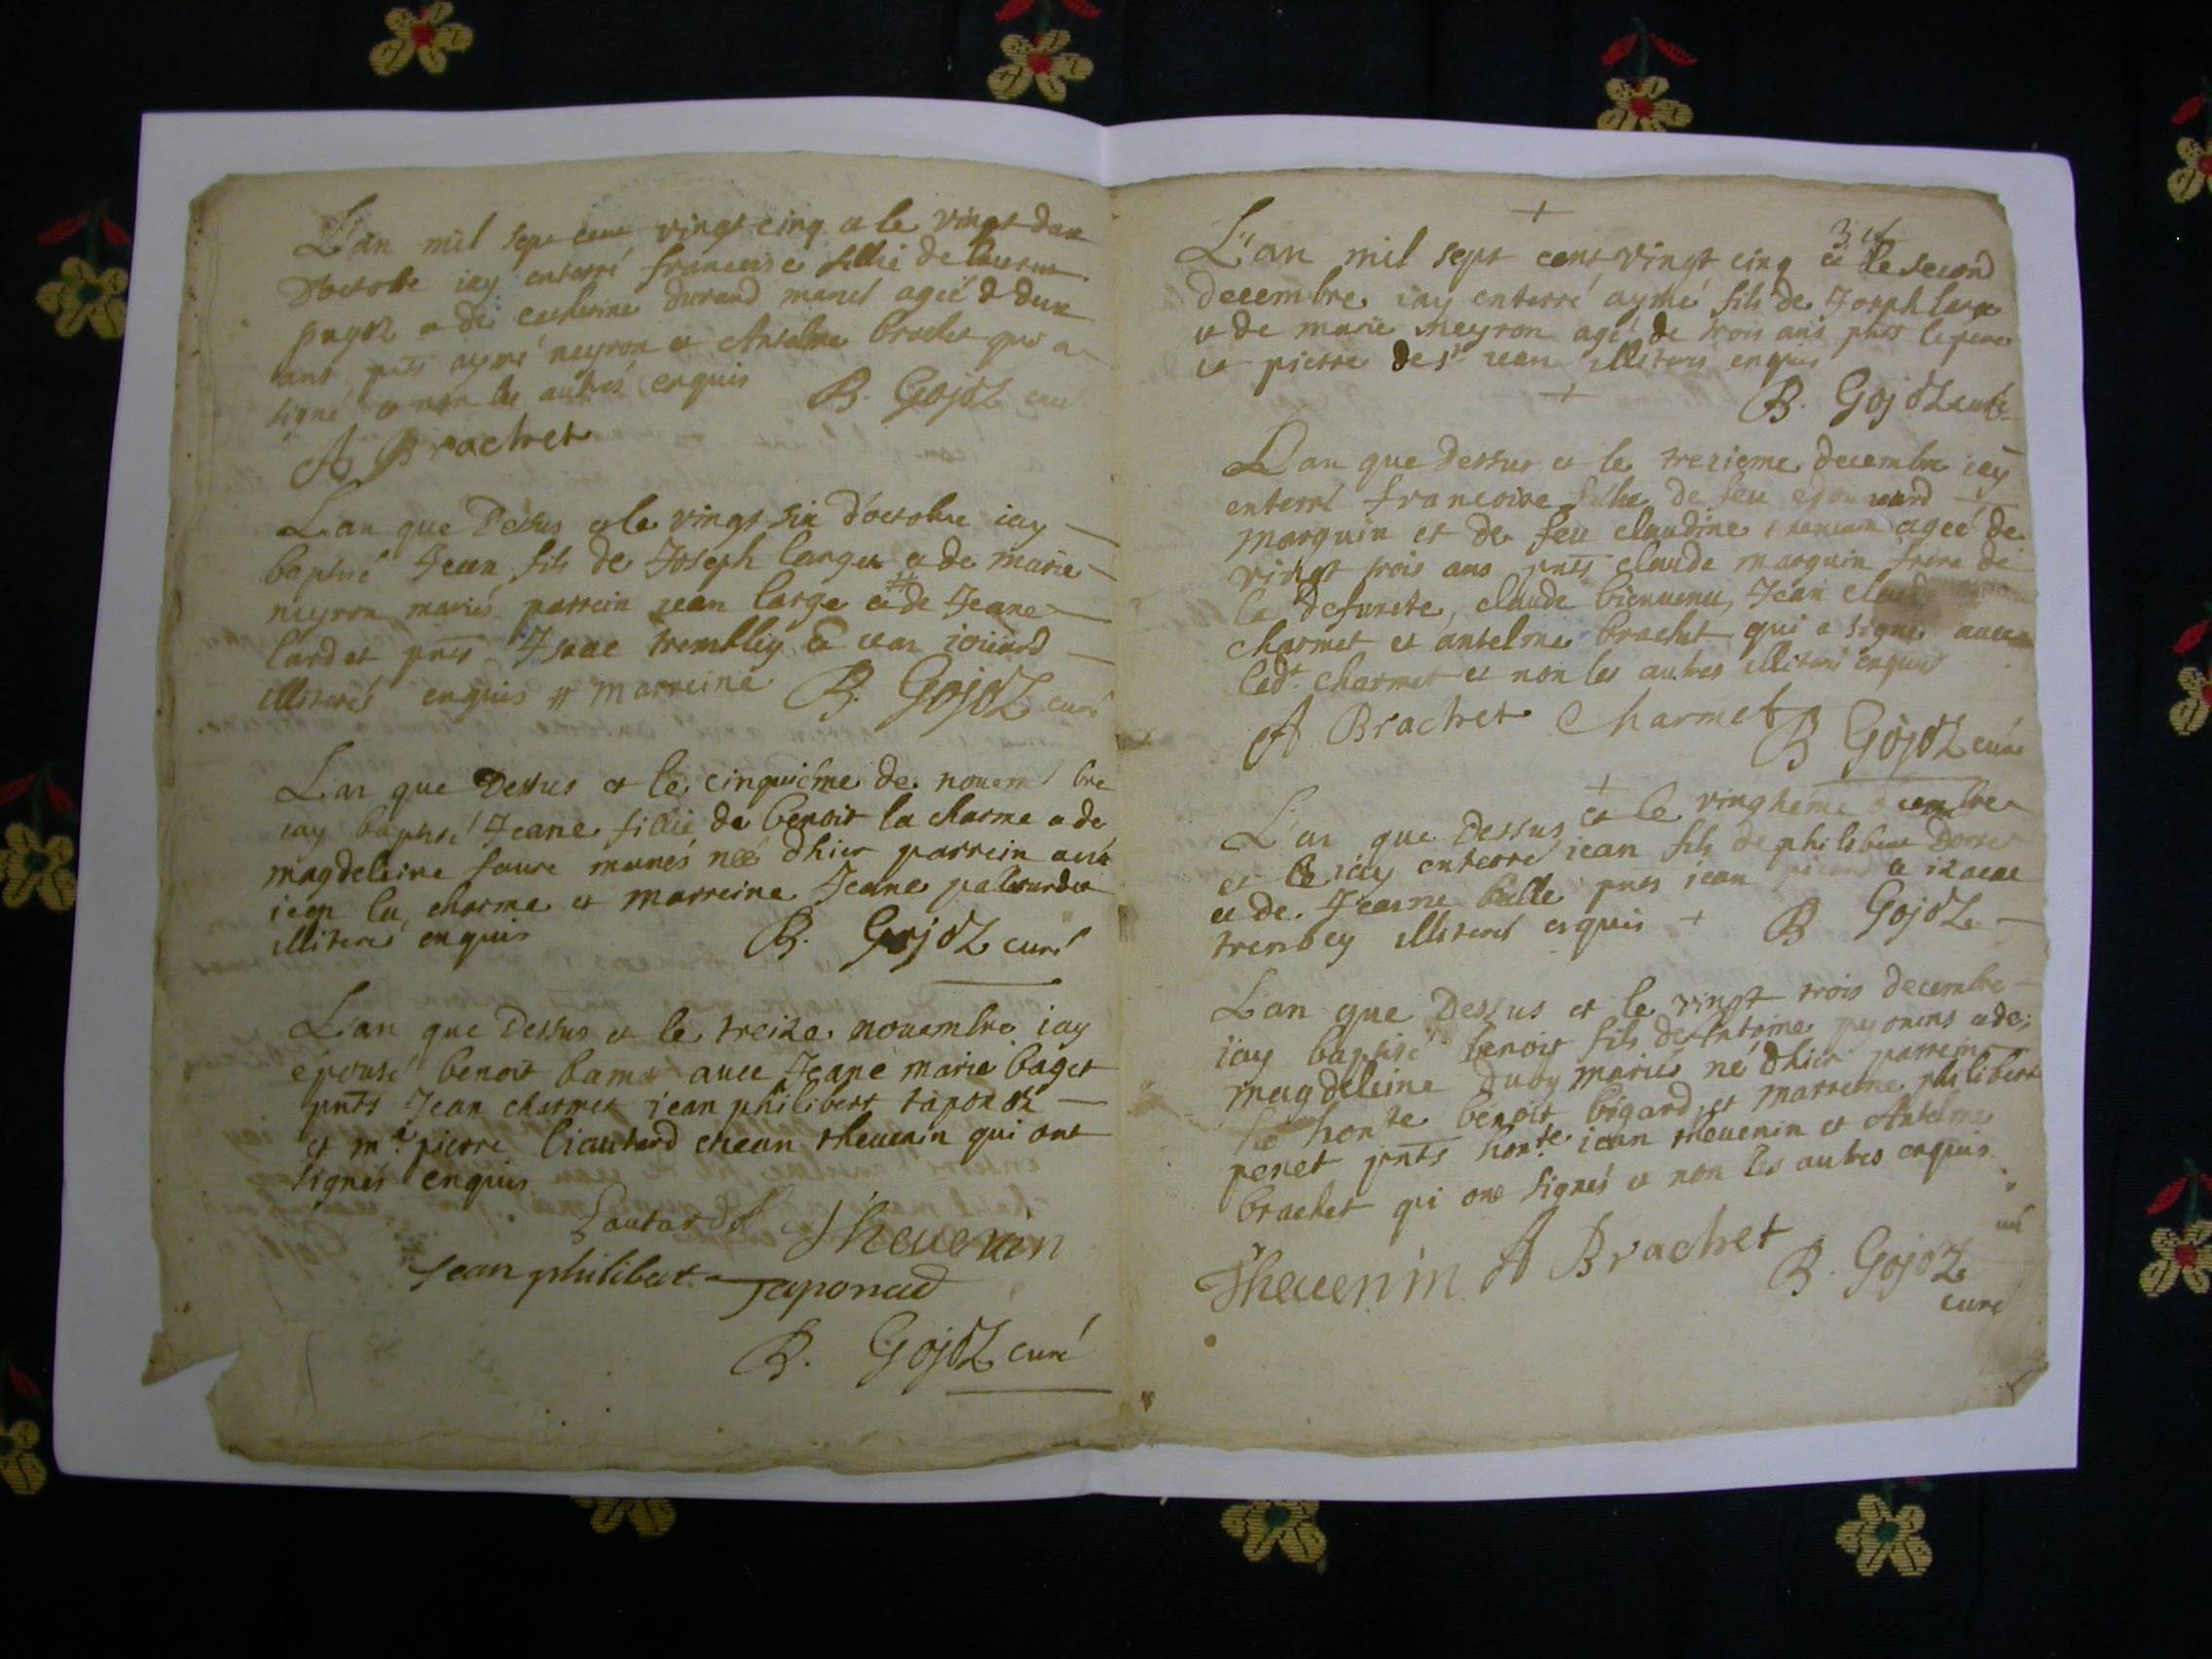 L'an mil sept cent vingt cinq et le vingt deux
d'octobre iay enterré francoise fillie de laurent
pugoz et de catherine durand mariés agée d deux
ans pnts aymé neyron et Antelme brachet qui a
signé et non les autres enquis B. Gojoz curé
A Brachet
L'an que Dessus et le vingt six d'octobre iay
baptisé Jean fils de Joseph large et de marie
neyron mariés parrein jean large et # de Jeane
lardet pnts Isaac tremblley et jean ioüard
illiterés enquis # marreine B. Gojoz curé
L'an que Dessus et le cinquiéme de nouembre
iay baptisé Jeane fillie de benoit la charme et de
magdeleine faure mariés née dhier parrein
jean la charme et marreine Jeane
illiterés enquis B. Gojoz curé
L'an que Dessus et le treize nouembre iay
épousé benoit bamet auec Jeane marie baget
pnts Jean charmet jean philibert taponoz
et mᵉ pierre liautard et jean theuenin qui ont
signés enquis
Liautard Theuenin
Jean philibert Taponad
B. Gojoz curé
+
L'an mil sept cent vingt cinq et le second
decembre iay enterré aymé fils de Joseph large
et de marie neyron agé de trois ans pnts le pere
et pierre de sᵗ jean illiterés enquis
+ B. Gojoz curé
L'an que dessus et le trezieme decembre iay
enterré francoise fillie de feu edouuard
marquin et de feu claudine agée de
vingt trois ans pnts claude marquin frere de
la defuncte, claude bienuenu, Jean claude
charmet et antelme brachet qui a signé auec
ledᵗ charmet et non les autres illiterés enquis
A Brachet Charmet B Gojoz curé
+
L'an que Dessus et le vingtiéme decembre
et iay enterré jean fils de philibert
et de Jeanne bulle pnts jean et izaac
trenbley illiterés enquis + B Gojoz
L'an que Dessus et le vingt trois decembre
iay baptisé benoit fils de Antoine et de
magdeleine mariés né dhier parrein
honᵗᵉ benoit bigard et marreine philiberte
penet pnts honᵗᵉ jean theuenin et Antelme
brachet qui ont signés et non les autres enquis
Theuenin A Brachet B. Gojoz
curé